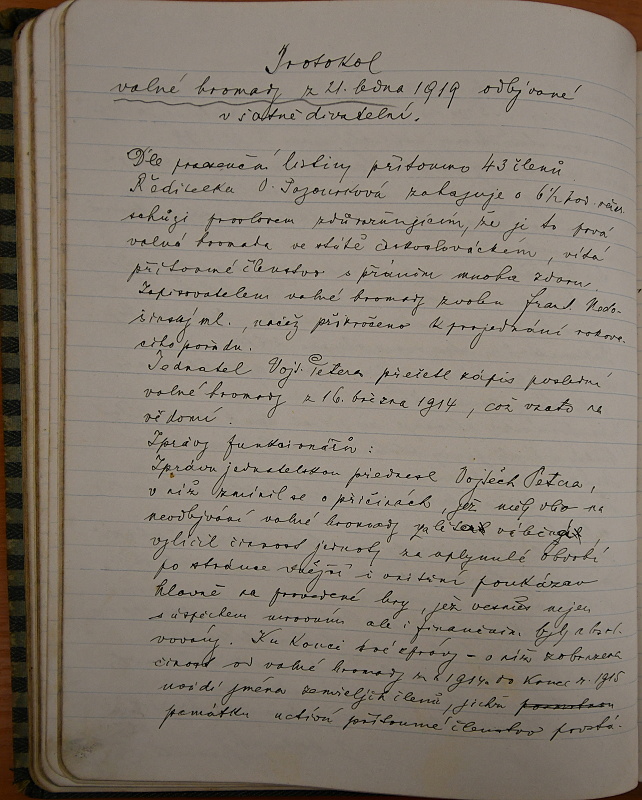 Protokol
valné hromady z 21. ledna 1919 odbývané
v šatně divatelní.
Dle presenční listiny přítomno 43 členů
Ředitelka O. zahajuje o 6½ hod. večer
schůzi proslovem zdůrazňujícím, že je to prvá
valná hromada ve státě československém, vítá
přítomné členstvo s přáním mnoha zdaru.
Zapisovatelem valné hromady zvolen Frant. Nedo-
ml., načež přikročeno k projednání rokova-
cího pořadu.
Jednatel Vojt. Petera přečetl zápis poslední
valné hromady z 16. března 1914, což vzato na
vědomí.
Zprávy funkcionářů:
Zprávu jednatelskou přednesl Vojtěch Petera,
v níž zmínil se o příčinách, jež měly vliv na
neodbývání valné hromady za let válečných
vylíčil činnost jednoty za uplynulé období
po stránce vnější i vnitřní poukázav
hlavně na provedené hry, jež vesměs nejen
s úspěchem morálním ale i finančním byly
Ku konci své zprávy – o níž zobrazena
činnost od valné hromady r. 1914 do konce r. 1918
uvádí jména zemřelých členů, jichž
památku uctívá přítomné členstvo povstá-